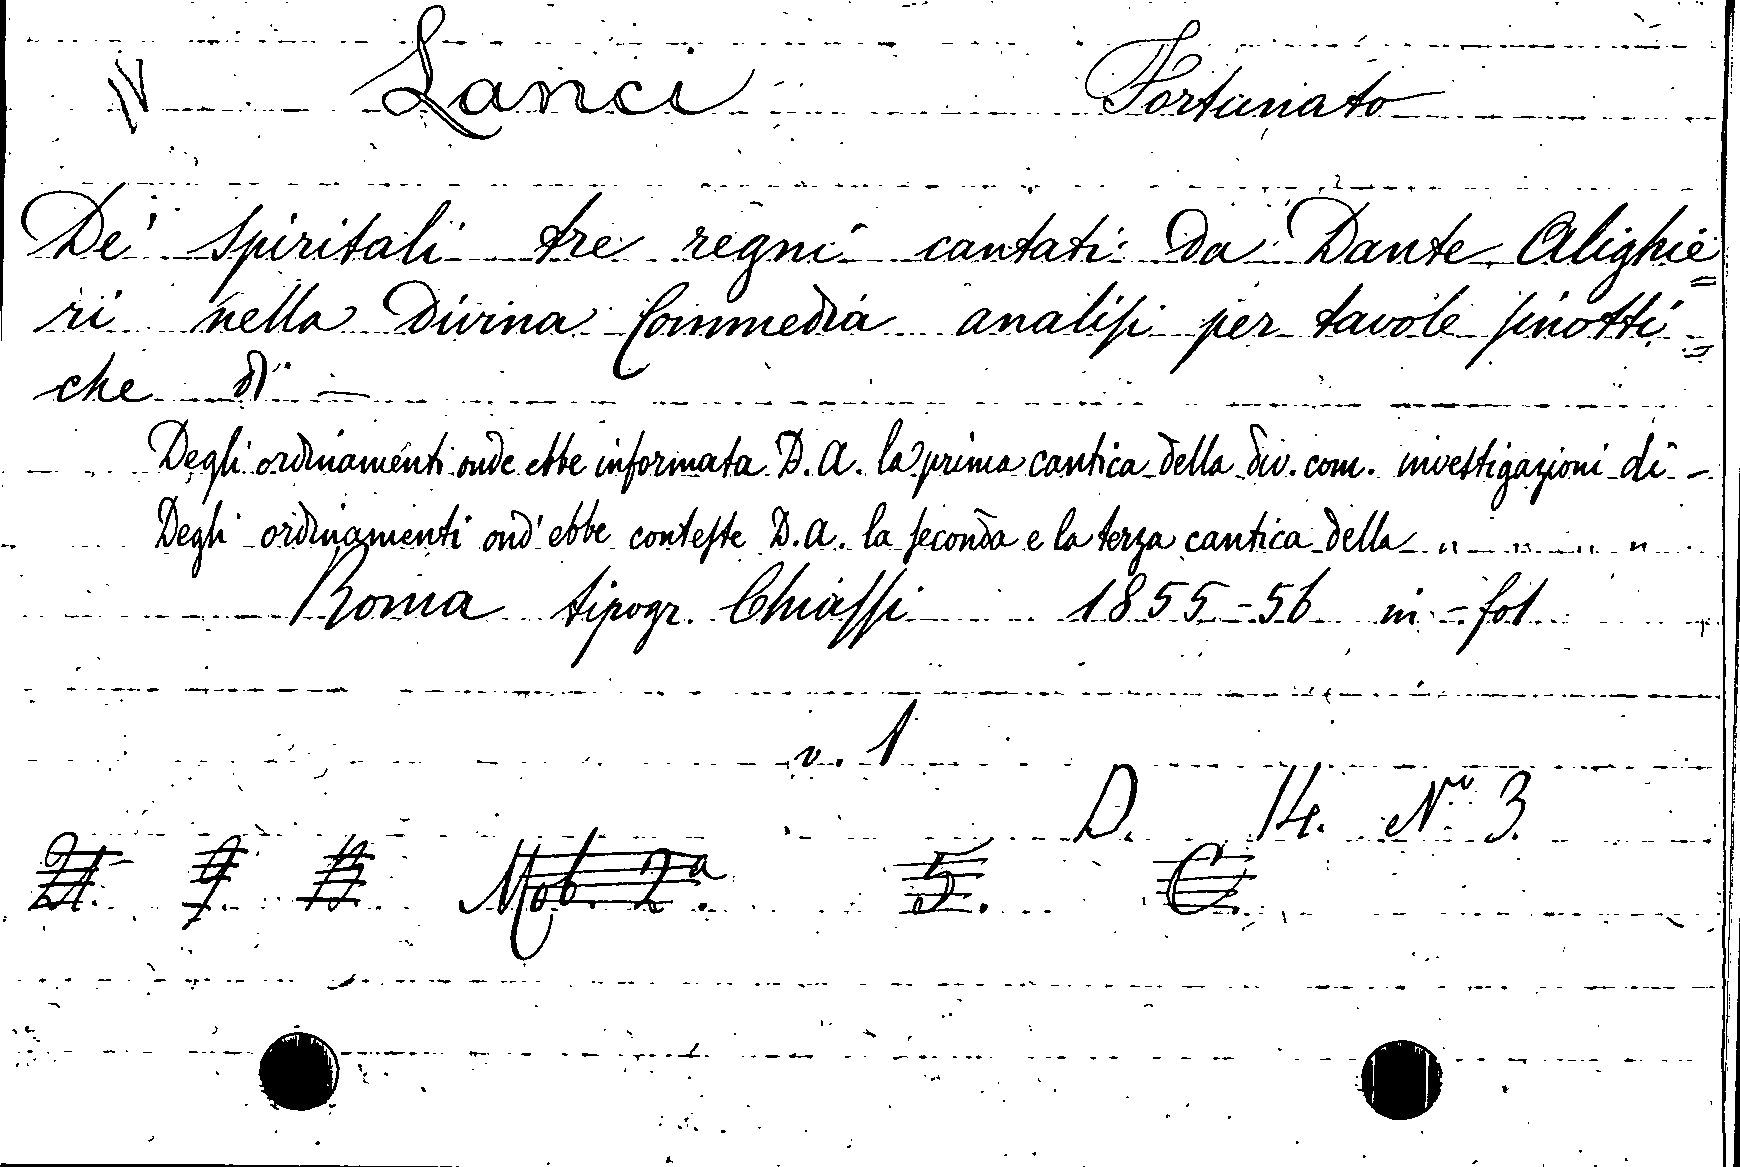 IV Lanci Fortunato
De' spiritali tre regni cantati da Dante Alighie=
ri nella Divina Commedia analisi per tavole sinotti=
che di —
Degli ordinamenti onde ebbe informata D. A. la prima cantica della div. com. investigazioni di —
Degli ordinamenti ond' ebbe conteste D. A. la seconda e la terza cantica della " " " "
Roma tipogr. Chiassi 1855-56 in-fol
v. 1
D. 14. No 3.
Mob. 2a. 5. C.